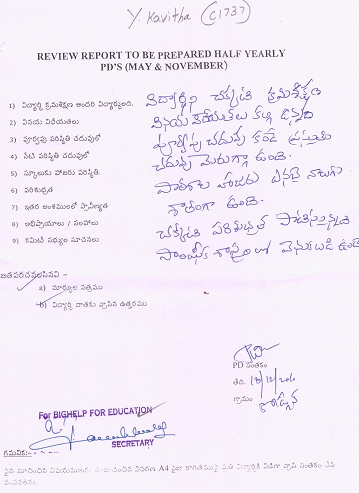 Y. Kavitha (C1737)
REVIEW REPORT TO BE PREPARED HALF YEARLY
PD'S (MAY & NOVEMBER)
1) విద్యార్థి క్రమశిక్షణ అందరి విద్యార్థులది.
2) వినయ విధేయతలు
3) పూర్వపు పరిస్థితి చదువులో
4) నేటి పరిస్థితి చదువులో
5) స్కూలుకు హాజరు పరిస్థితి.
6) పరిశుభ్రత
7) ఇతర అంశములలో ప్రావీణ్యత
8) అభిప్రాయాలు / సలహాలు
9) కమిటి సభ్యుల సూచనలు
విద్యార్థిని చక్కటి క్రమశిక్షణ
వినయ విధేయతలు కల్గి ఉన్నది
పూర్వపు చదువు కంటే ప్రస్తుత
చదువు మెరుగ్గా ఉంది.
పాఠశాల హాజరు ఎనభై నాలుగు
శాతంగా ఉంది.
చక్కటి పరిశుభ్రత పాటిస్తున్నది
సాంఘీక శాస్త్రంలో వెనుకబడి ఉంది
జతపరచవలసినవి -
a) మార్కుల పత్రము
b) విద్యార్థి దాతకు వ్రాసిన ఉత్తరము
PD సంతకం
తేది.
గ్రామం
For BIGHELP FOR EDUCATION
SECRETARY
గమనిక:-